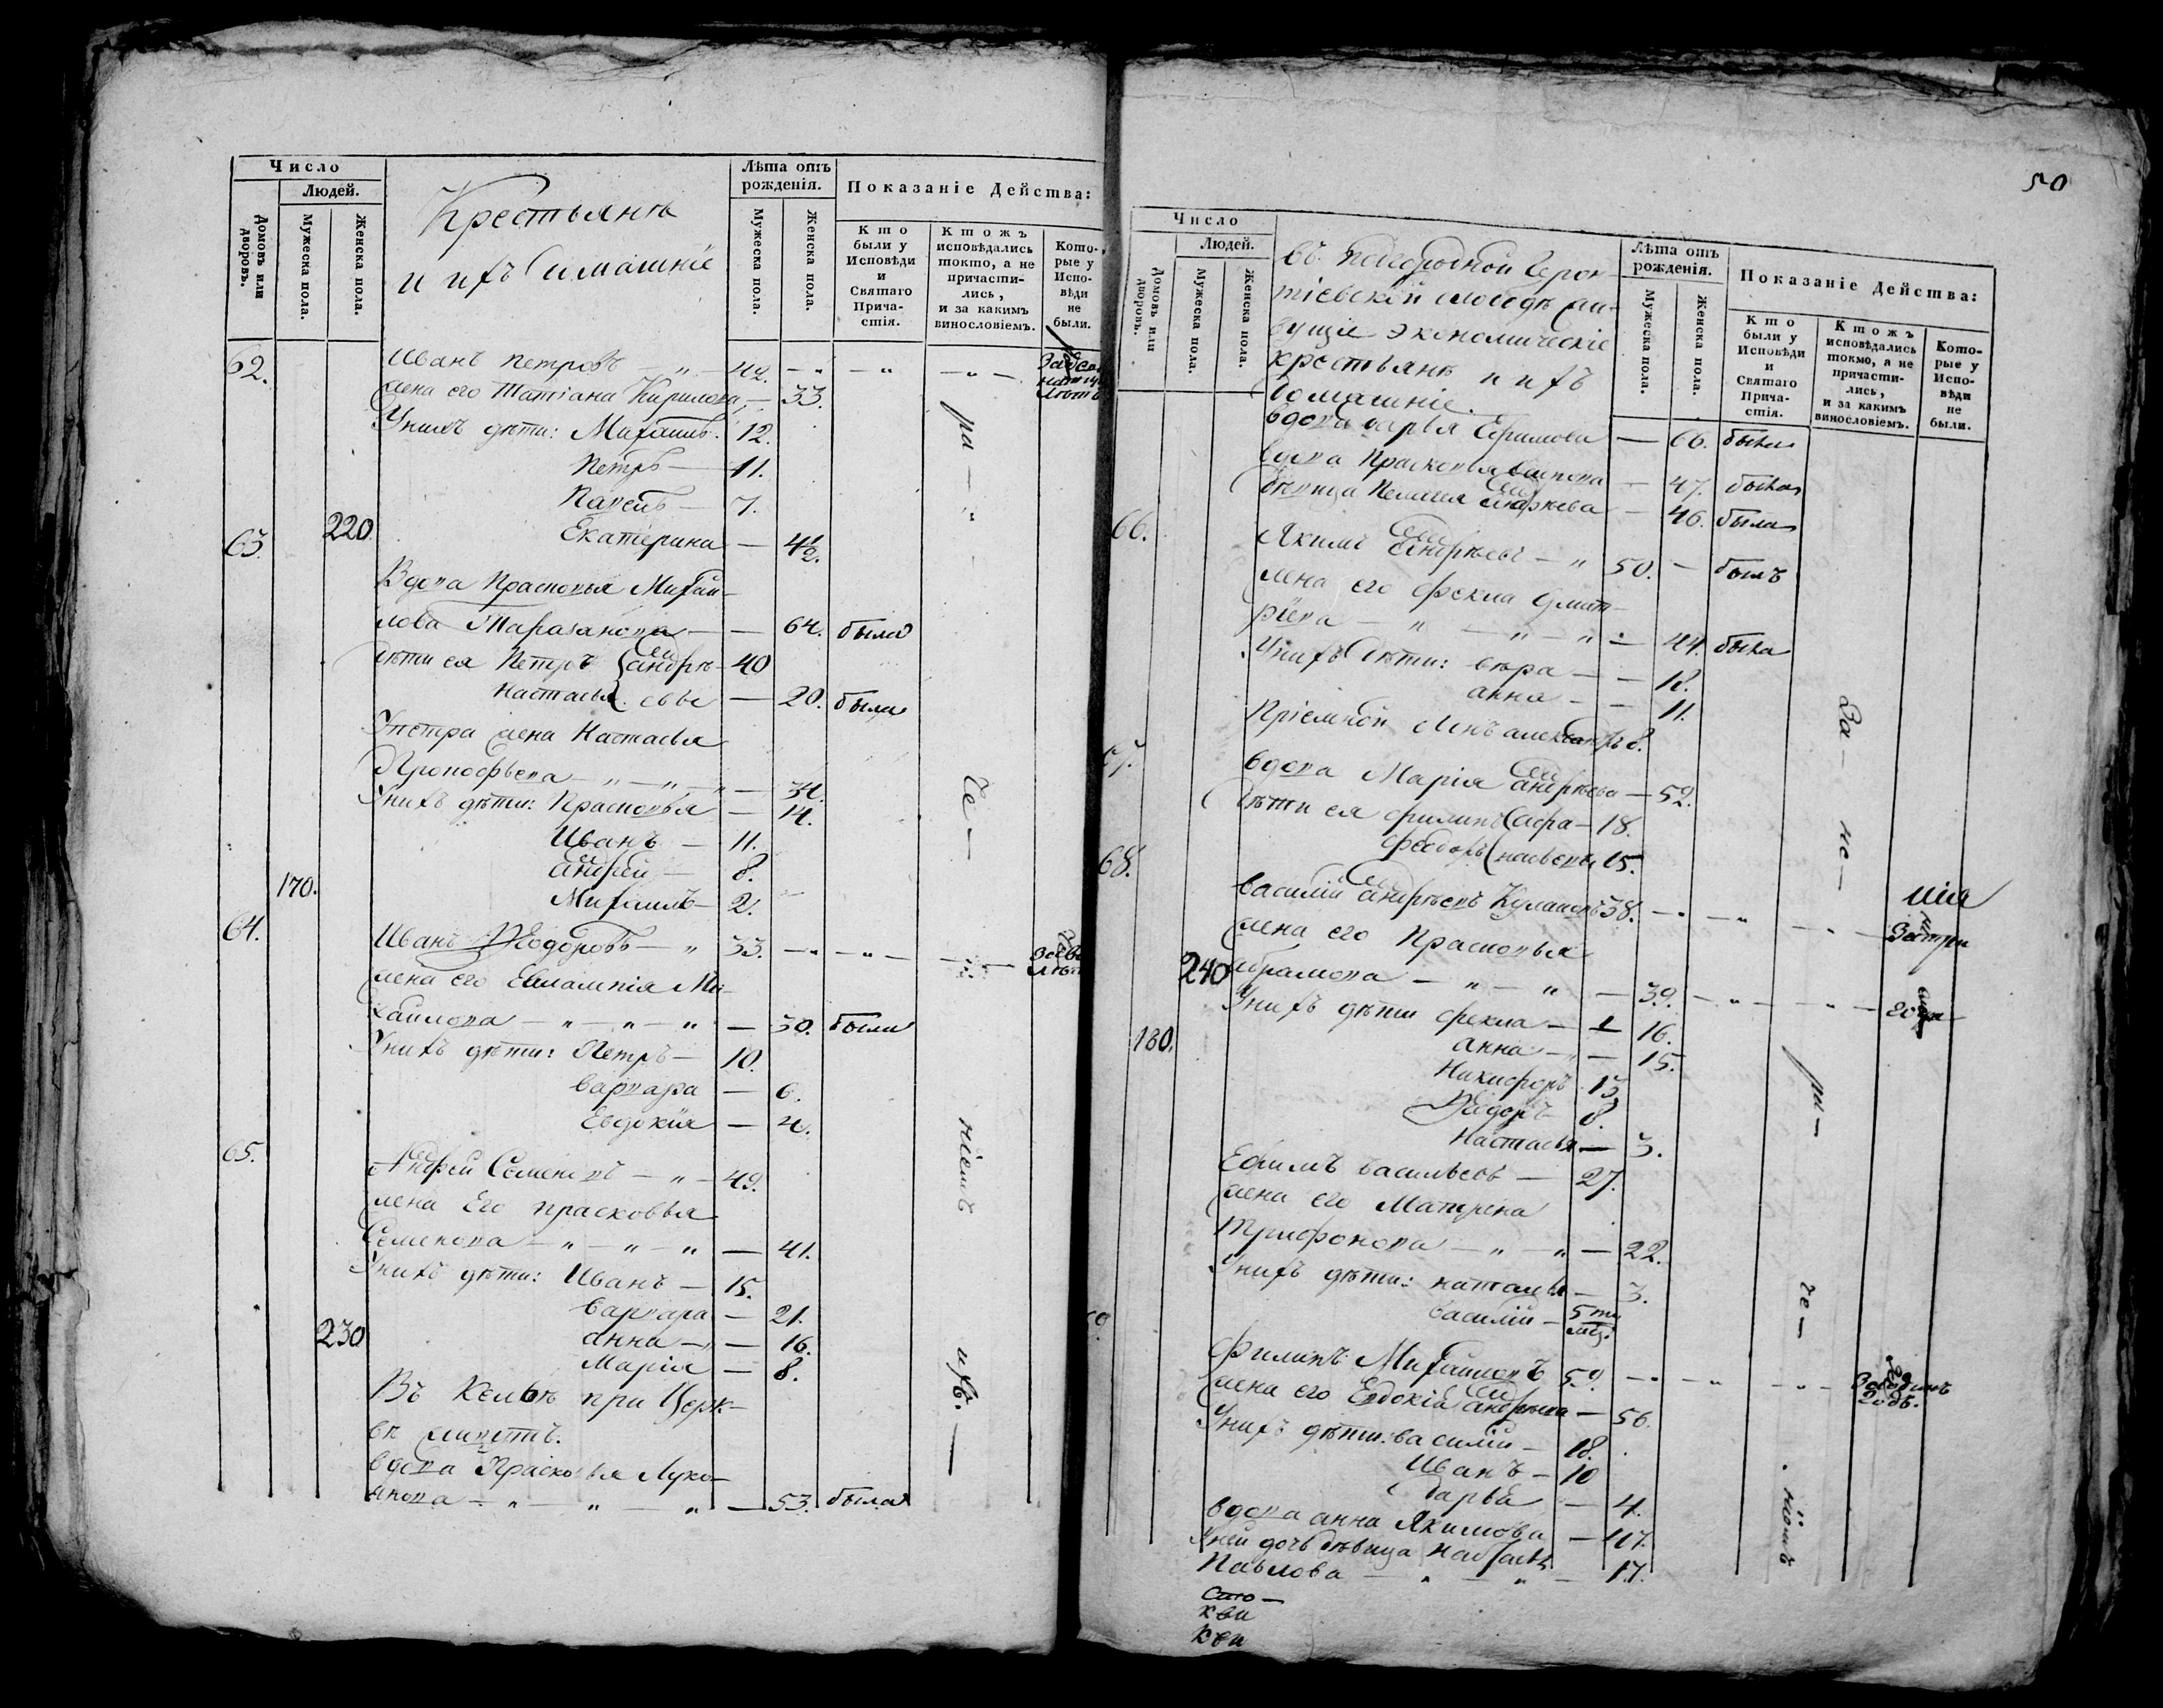 Число
Людей.
Домовъ или дворовъ.
Мужеска пола.
Женска пола.
Крестьянѣ
и ихъ домашніе
Лѣта отъ рожденія.
Мужеска пола.
Женска пола.
Показаніе Действа:
Кто были у Исповѣди и Святаго Причастія.
Ктожъ исповѣдались токмо, а не причастились, и за какимъ винословіемъ.
Которые у Исповѣди не были.
62. Иванъ Петровъ — „ — 42.
жена его Татіана Кирилова — 33.
Унихъ дѣти: Михаилъ. 12.
Петръ — 11.
Павелъ — 7.
220 Екатерина — 4½.
63.
Вдова Прасковья Михай-
лова — — 64. была
дѣти ея Петръ Андрѣ- 40
Настасья евы — 20. была
У петра жена Настасья
Прокофьева — „ — „ — 34.
Унихъ дѣти: Прасковья — 14.
Иванъ — 11.
Андрей — 8.
170. Михаилъ — 2.
64. Иванъ Ѳеодоровъ — „ 33.
жена его Евлампія Ми-
хайлова — „ — „ — „ — 30. была
Унихъ дѣти: Петръ — 10.
Варвара — 6.
Евдокия — 4.
65. Андрей Семеновъ — „ — 49.
жена Его прасковья
Семенова — „ — „ — „ — 41.
Унихъ дѣти: Иванъ — 15.
Варвара — 21.
230 анна — 16.
Марія — 8.
Въ Кельѣ при Церк-
вѣ живетъ.
вдова Прасковья Луко-
янова — „ — „ — „ — 53. была
ра —
че —
ніемъ
ихъ. —
50
Число
Людей.
Домовъ или дворовъ.
Мужеска пола.
Женска пола.
въ подгородной Герон-
тіевской слободѣ жи-
вущіе экономическіе
крестьянѣ и ихъ
домашніе.
Лѣта отъ рожденія.
Мужеска пола.
Женска пола.
Показаніе Действа:
Кто были у Исповѣди и Святаго Причастія.
Ктожъ исповѣдались токмо, а не причастились, и за какимъ винословіемъ.
Которые у Исповѣди не были.
вдова дарья Ефимова — 66. была
вдова Прасковья — 47. была
дѣвица Пелагея Андреева — 46. была
66. Якимъ Андрѣевъ — „ 50. — былъ
жена его Фекла Дмит-
ріева — „ — „ — „ — 44. была
Унихъ дѣти: вѣра — — 12.
анна — — 11.
Пріемной сынъ александръ 8.
67. вдова Марія Андрѣева — 52.
дѣти ея филипъ Афа- 18.
Ѳеодоръ насьевы 15.
68.
василій Андрѣевъ 38.
жена его Прасковья
240 Абрамова — „ — „ — 39.
Унихъ дѣти фекла — 16.
180. анна — „ — 15.
Никифоръ 13.
Ѳеодоръ 8.
Настасья — 3.
Ефимъ васильевъ — 27.
жена его Матрена
Трифонова — „ — „ — 22.
Унихъ дѣти: наталья — 3.
василій — 5ти мц.
Филипъ Михайловъ 59.
жена его Евдокія Андрѣева — 56.
Унихъ дѣти: василій — 18.
Иванъ — 10
дарья — 4.
вдова анна Якимова — 47.
Уней дочь дѣвица
Павлова — „ — „ — 17.
За —
не —
ра —
че —
ніемъ